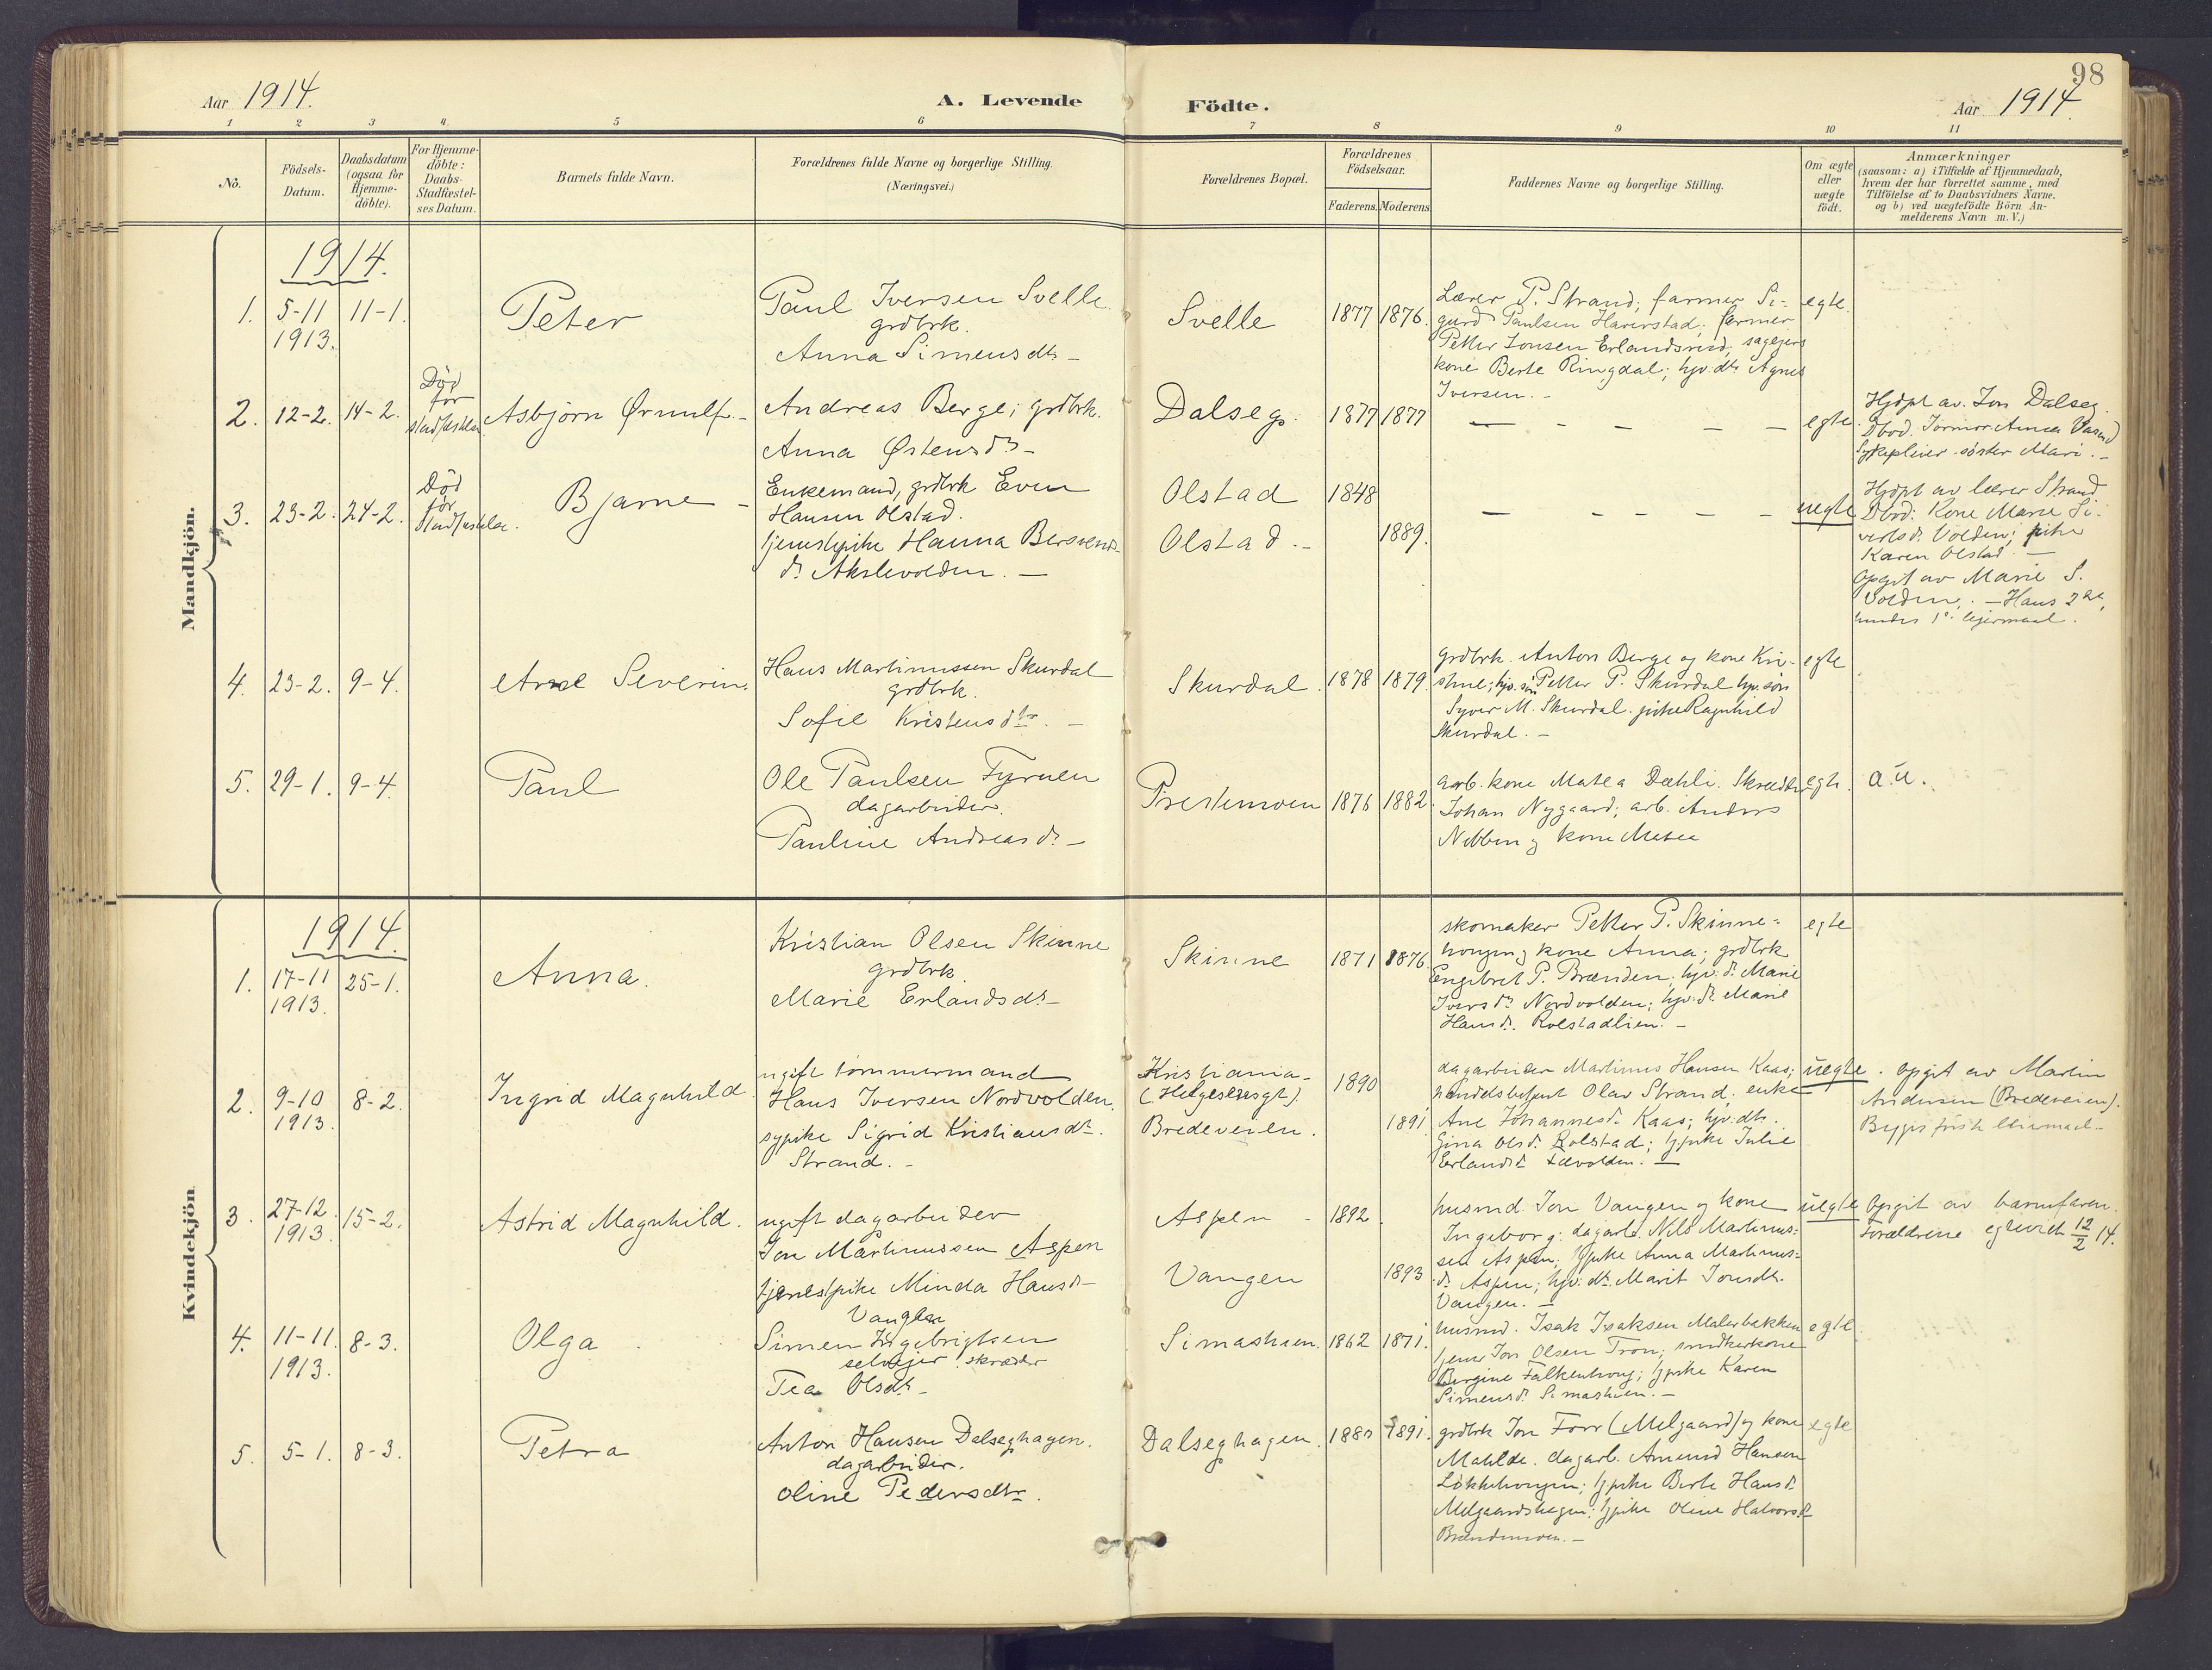 98
Aar 1914.
A. Levende Födte.
Aar 1914.
1 2 3 4 5 6 7 8 9 10 11
No.
Födsels-Datum.
Daabsdatum (ogsaa for Hjemme-döbte).
For Hjemme-döbte: Daabs-Stadfæstel-ses Datum.
Barnets fulde Navn.
Forældrenes fulde Navne og borgerlige Stilling.
(Næringsvei.)
Forældrenes Bopæl.
Forældrenes Födselsaar.
Faderens. Moderens
Faddernes Navne og borgerlige Stilling.
Om ægte eller uægte födt.
Anmærkninger
(saasom: a) i Tilfælde af Hjemmedaab,
hvem der har forrettet samme, med
Tilföielse af to Daabsvidners Navne.
og b) ved uægtefödte Börn An-
melderens Navn m. V.)
Mandkjön.
1914.
1. 5-11 1913. 11-1.
Peter
Paul Iversen Svelle
grdbrk.
Anna Simensdtr -
Svelle
1877 1876.
Lærer P. Strand; farmer Si-
gurd Paulsen Haverstad; farmer
Petter Jonsen Erlandsrud; sagejers
kone Berte Ringdal; hjv. dtr Agnes
Iversen. -
egte.
2. 12-2. 14-2.
Död för stadfestelse.
Asbjörn Ørnulf. -
Andreas Berge; grdbrk.
Anna Østensdr -
Dalseg.
1877 1877
— - - — —
egte.
Hjdpt av. Jon Dalseg.
Dbvd. Jormor Anna
Sykepleier söster Mari. -
3. 23-2. 24-2.
Död för Stadfestelse.
Bjarne -
Enkemand, grdbrk Even
Hansen Olstad.
tjenestepike Hanna Bersvends-
dr Akslevolden. —
Olstad
Olstad. -
1848
1889.
— - - - -
uegte
Hjdpt av lærer Strand
Dbvd: Kone Marie Si-
vertsdr Volden; pike
Karen Olstad. —
Opgit av Marie S.
Volden. — Hans 2det,
hendes 1ste leiermaal.
4. 23-2. 9-4.
Arne Severin.
Hans Martinussen Skurdal
grdbrk.
Sofie Kristensdtr. -
Skurdal.
1878 1879.
grdbrk. Anton Berge og kone Kri-
stine; hjv. sön Petter P. Skurdal hjv. sön
Syver M. Skurdal. pike Ragnhild
Skurdal. -
egte
5. 29-1. 9-4.
Paul
Ole Paulsen Fyruen
dagarbeider.
Pauline Andreasdr. -
Prestemoen
1876 1882
arb. kone Matea Dæhli. Skrædder
Johan Nygaard; arb. Anders
Nebben og kone Matea
egte.
a. u.
Kvindekjön
1914.
1. 17-11 1913. 25-1.
Anna.
Kristian Olsen Skinne
grdbrk.
Marie Erlandsdr. -
Skinne
1871 1876.
skomaker Petter P. Skinne-
haugen og kone Anna; grdbrk
Engebret P. Brænden; hjv: dr. Marie
Iversdr. Nordvolden; hjv: dr. Marie
Hansdr. Rolstadlien. -
egte
2. 9-10 1913. 8-2.
Ingrid Magnhild
ugift tömmermand
Hans Iversen Nordvolden.
sypike Sigrid Kristiansdr.
Strand. -
Kristiania-
(Helgesensgt.)
Bredeveien.
1890
1891
dagarbeider Martinus Hansen Kaas;
handelsbetjent Olav Strand; enke
Ane Johannesdr. Kaas; hjv. dtr.
Gina Olsdr. Rolstad; tjpike Julie
Erlandsdr. —
uegte.
Opgit av Martin
Andersen (Bredeveien).
Begges förste leiermaal -
3. 27-12 1913. 15-2.
Astrid Magnhild.
ugift dagarbeider
Jon Martinussen Aspen
tjenestpike Minda Hansdr -
Vangen
Aspen -
Vangen
1892.
1893
husmd. Jon Vangen og kone
Ingeborg: dagarb. Nils Martinus-
sen Aspen; tjpike Anna Martinus-
dr. Aspen; hjv: dtr. Marit Jonsdtr.
Vangen. —
uegte
Opgit av barnefaren.
Forældrene egteviet 12/2 14.
4. 11-11 1913. 8-3.
Olga
Simen Ingebrigtsen
selvejer. skræder
Tea Olsdtr -
Simastuen.
1862 1871.
husmd. Isak Isaksen Malerbakken
tjener Jon Olsen Tron; snedkerkone
Bergine Falkenhaug; tjpike Karen
Simensdr. Simastuen. -
egte.
5. 5-1. 8-3.
Petra
Anton Hansen Dalseghagen.
dagarbeider.
Oline Pedersdtr.
Dalseghagen.
1880 1891.
grdbrk Jon Forr (Melgaard) og kone
Matilde. dagarb. Amund Hansen
Lökkehaugen; tjpike Berte Hansdr.
Melgaardshagen; tjpike Oline Halvorsdr.
Brændmoen. -
egte